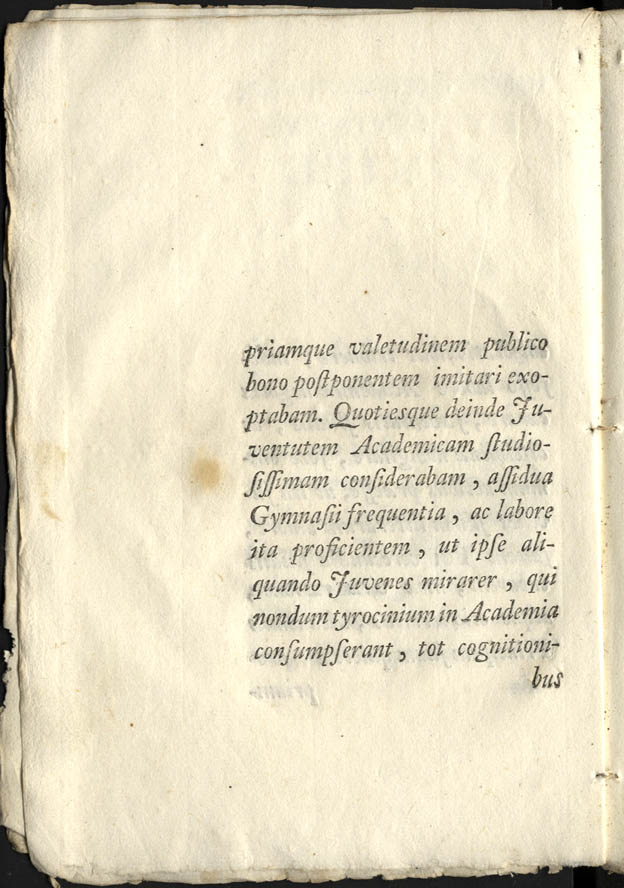 priamque valetudinem publico
bono poſtponentem imitari exo-
ptabam. Quotiesque deinde Ju-
ventutem Academicam ſtudio-
ſiſſimam conſiderabam, aſſidua
Gymnaſii frequentia, ac labore
ita proficientem, ut ipſe ali-
quando Juvenes mirarer, qui
nondum tyrocinium in Academia
conſumpſerant, tot cognitioni-
bus